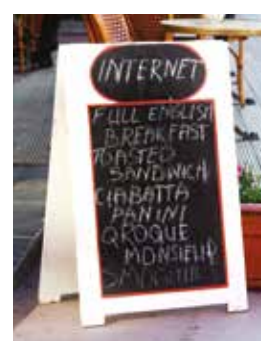 INTERNET
FULL ENGLISH
BREAKFAST
TOASTED
SANDWICH
CIABATTA
PANINI
QROQUE
MONSIEUR